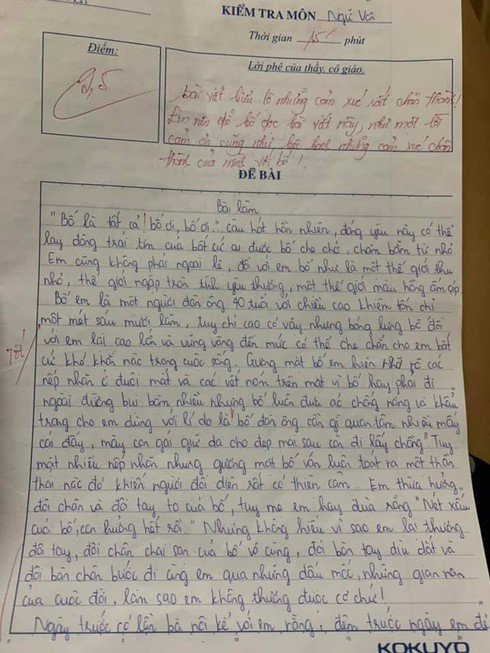 KIỂM TRA MÔN Ngữ Vă
Thời gian 15' phút
Điểm:
9,5
Lời phê của thầy, cô giáo.
bài viết biểu lộ những cảm xúc rất chân thành!
Em nên để bố đọc bài viết này, như một lời
cảm ơn cũng như bộc bạch những cảm xúc chân
thành của mình với bố!
ĐỀ BÀI
Bài làm
"Bố là tất cả! bố ơi, bố ơi..." câu hát hồn nhiên, đáng yêu này có thể
lay động trái tim của bất cứ ai được bố che chở, chăm bẵm từ nhỏ
Em cũng không phải ngoại lệ, đối với em bố như là một thế giới thu
nhỏ, thế giới ngập tràn tình yêu thương, một thế giới màu hồng ấm áp
Bố em là một người đàn ông 40 tuổi với chiều cao khiêm tốn chỉ
một mét sáu mươi lăm, tuy chỉ cao có vậy nhưng bóng lưng bố đối
với em lại cao lớn và vững vàng đến mức có thể che chắn cho em bất
cứ khó khăn nào trong cuộc sống. Gương mặt bố em hiện rõ các
nếp nhăn ở đuôi mắt và các vết nám trên mặt vì bố hay phải đi
ngoài đường bụi bặm nhiều nhưng bố luôn đưa áo chống nắng và khẩu
trang cho em dùng với lí do là "bố đàn ông cần gì quan tâm nhiều mấy
cái đấy, mày con gái giữ da cho đẹp mai sau còn đi lấy chồng" Tuy
mặt nhiều nếp nhăn nhưng gương mặt bố vẫn luôn toát ra một thần
thái nào đó khiến người đối diện rất có thiện cảm. Em thừa hưởng
đôi chân và đôi tay to của bố, tuy mẹ em hay đùa rằng "Nét xấu
của bố, con hưởng hết rồi." Nhưng không hiểu vì sao em lại thương
đôi tay, đôi chân chai sạn của bố vô cùng, đôi bàn tay dìu dắt và
đôi bàn chân bước đi cùng em qua những dấu mốc, những gian nan
của cuộc đời, làm sao em không thương được cơ chứ!
Ngày trước có lần bà nội kể với em rằng, đêm trước ngày em đẻ
Tốt
KOKUYO